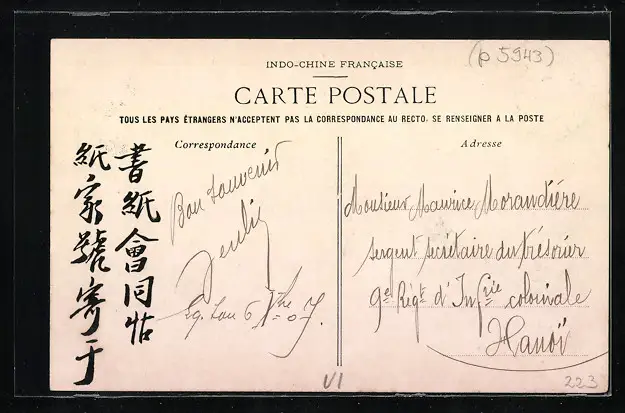 (p 5943)
INDO-CHINE FRANÇAISE
CARTE POSTALE
TOUS LES PAYS ÉTRANGERS N'ACCEPTENT PAS LA CORRESPONDANCE AU RECTO. SE RENSEIGNER A LA POSTE
Correspondance
書紙會同帖
紙家號寄于
Bon souvenir
6 7bre 07.
Adresse
Monsieur Maurice Morandière
sergent secrétaire du trésorier
9e Rigt d'Infrie coloniale
Hanoï
VI
223